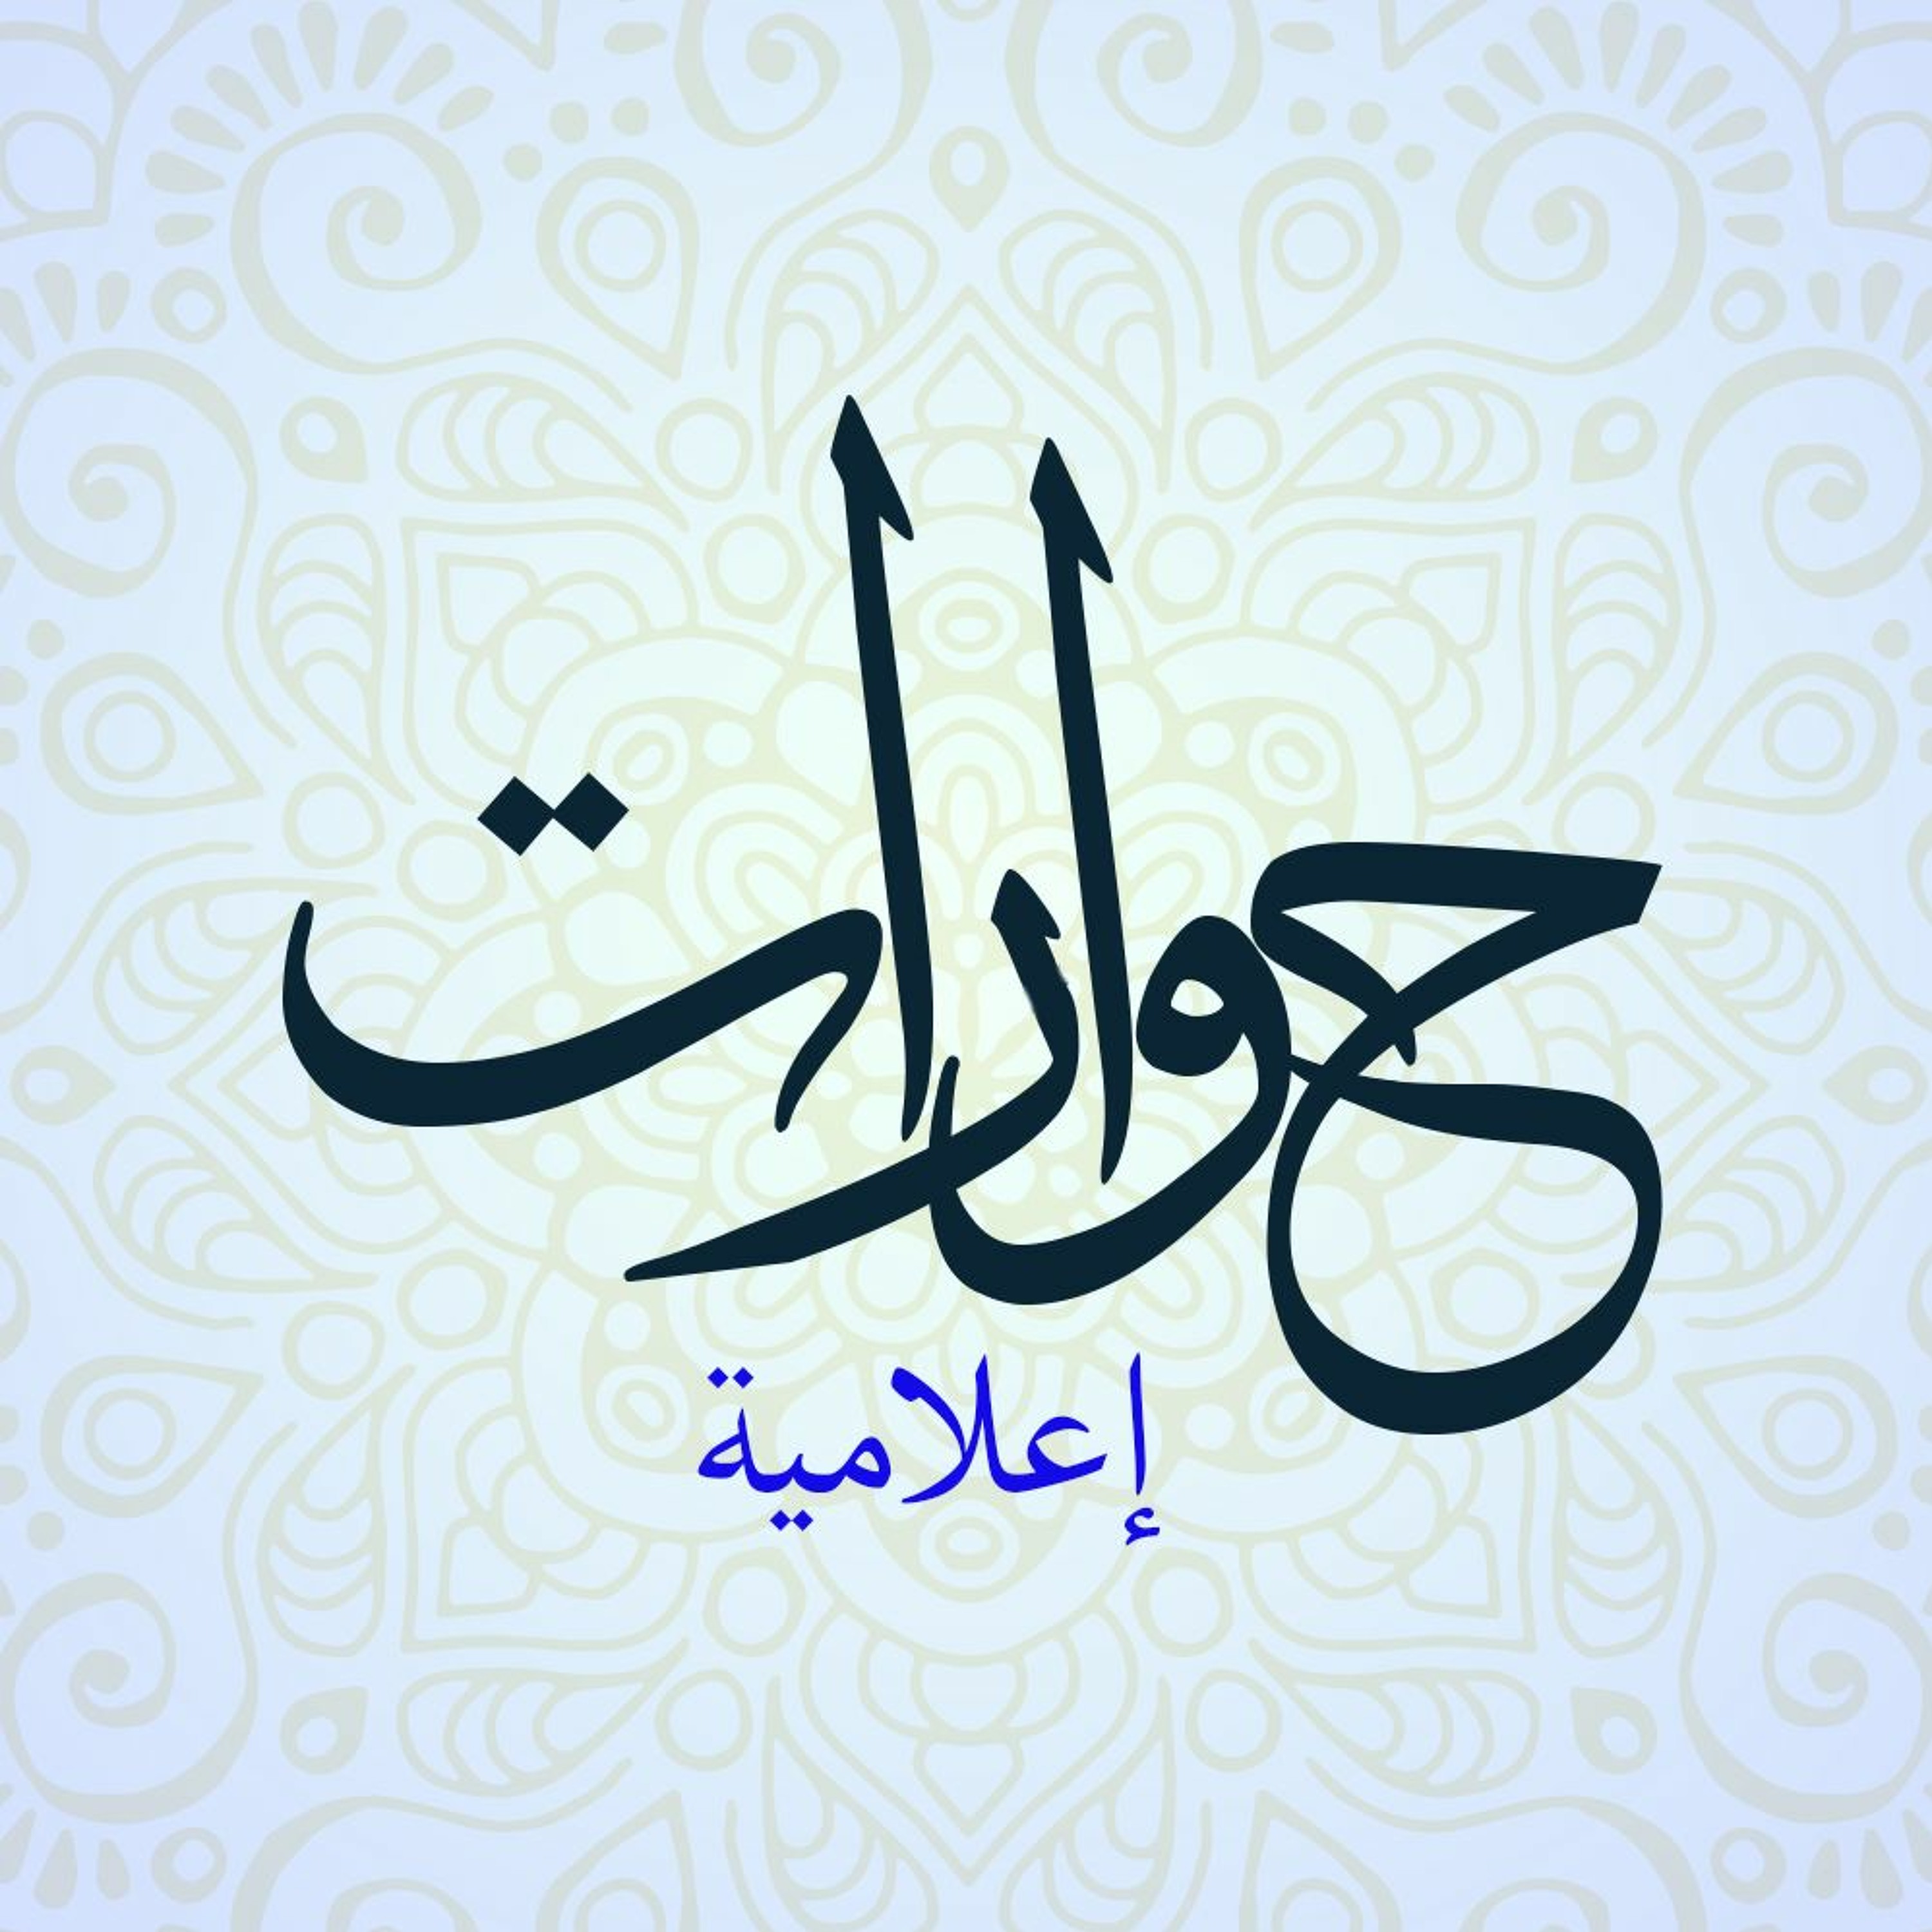 حوارات
إعلامية